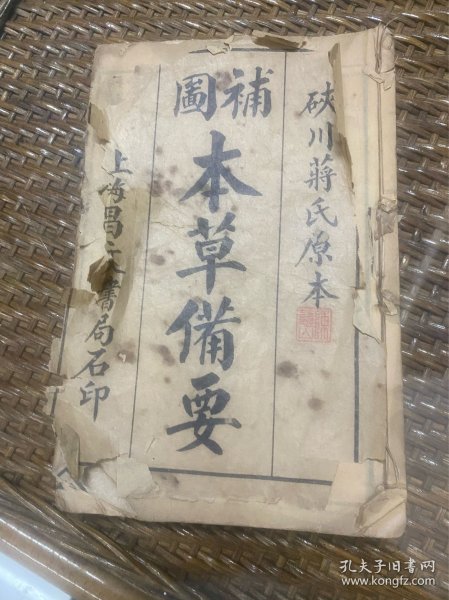 硤川蔣氏原本
補圖
本草備要
上海昌文書局石印
孔夫子旧书网
www.kongfz.com